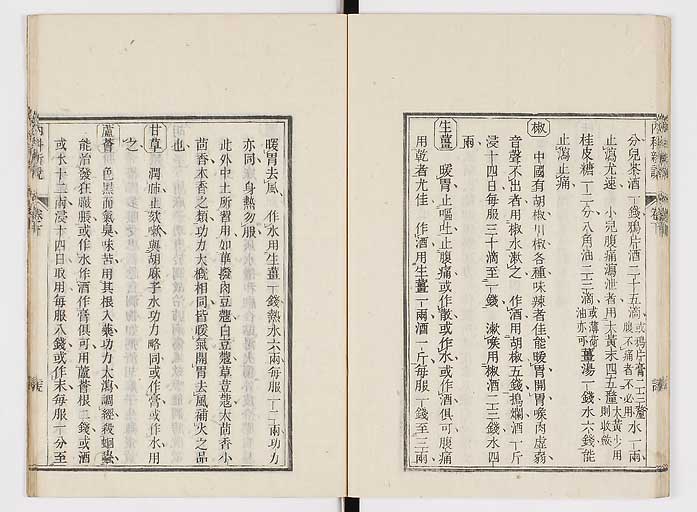 分兒茶酒一錢鴉片酒二十五滴或鴉片膏二三釐水一兩
止瀉尤速 小兒腹痛瀉泄者用大黃末四五釐
桂皮糖一二分八角油二三滴或薄荷油亦可薑湯一錢水六錢能
止瀉止痛
椒 中國有胡椒川椒各種味辣者佳能暖胃開胃喉肉虛弱
音聲不出者用椒水漱之 作酒用胡椒五錢搗爛酒一斤
浸十四日每服三十滴至一錢 漱喉用椒酒二三錢水四
兩
生薑 暖胃止嘔吐止腹痛或作散或作水或作酒俱可腹痛
用乾者尤佳 作酒用生薑一兩酒一斤每服一錢至三十兩
暖胃去風 作水用生薑一錢熱水六兩每服一二兩功力
亦同 身熱勿服
此外中土所習用如蓽撥肉豆蔻白豆蔻草荳蔻大茴香小
茴香木香之類功力大槪相同皆暖氣開胃去風補火之品
也
甘草 潤肺止欬嗽與胡麻子水功力略同或作膏或作水用
之
蘆薈 色黑而氣臭味苦用其根入藥功力大瀉調經殺蛔蟲
能治發狂臌脹或作水作酒作膏俱可用蘆薈根二錢或酒
或水十二兩浸十四日取用每服八錢或作末每服一分至
內科新說
卷下